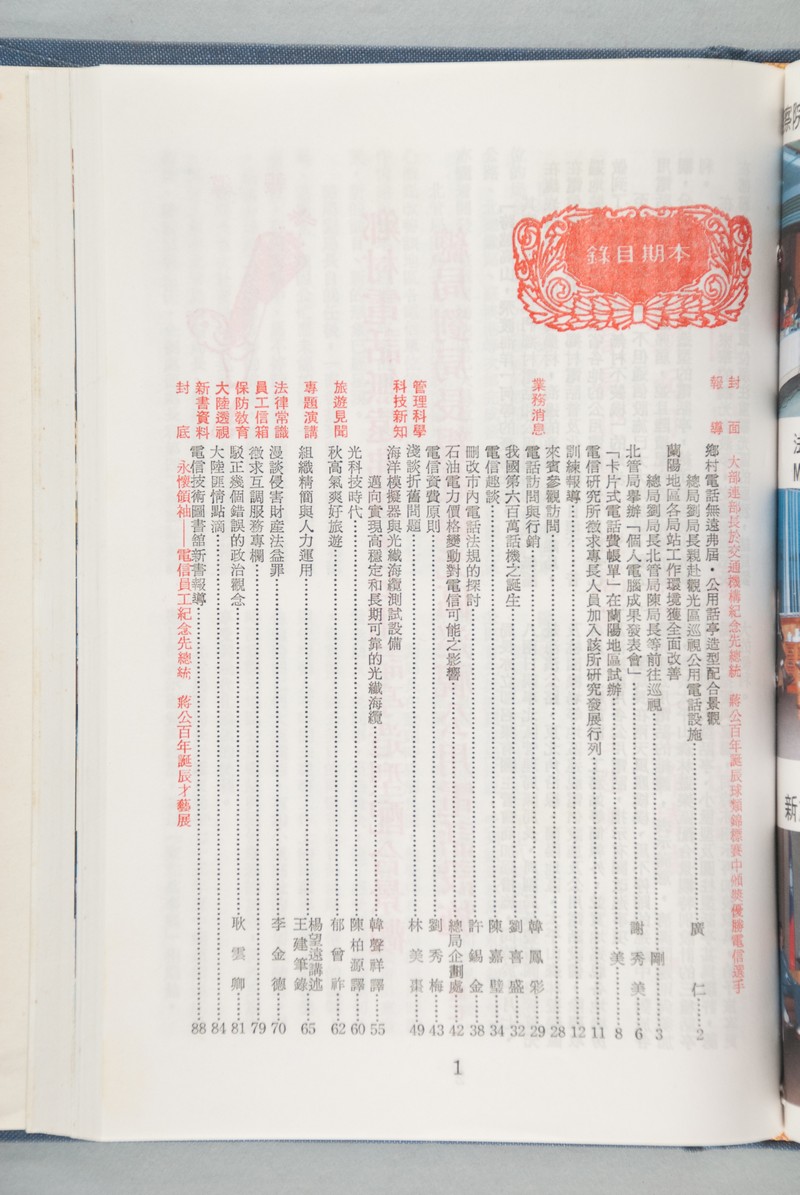 本期目錄
封面 大部連部長於交通機構紀念先總統 蔣公百年誕辰球類錦標賽中頒獎優勝電信選手
報導 鄉村電話無遠弗屆・公用話亭造型配合景觀
總局劉局長親赴觀光區巡視公用電話設施 廣仁 2
蘭陽地區各局站工作環境獲全面改善
總局劉局長北管局陳局長等前往巡視 剛 3
北管局舉辦「個人電腦成果發表會」 謝秀美 6
「卡片式電話費帳單」在蘭陽地區試辦 美 8
電信研究所徵求專長人員加入該所研究發展行列 11
訓練報導 12
來賓參觀訪問 28
業務消息 電話訪問與行銷 韓鳳彩 29
我國第六百萬話機之誕生 劉喜盛 32
電信趣談 陳嘉璧 34
刪改市內電話法規的探討 許錫金 38
石油電力價格變動對電信可能之影響 總局企劃處 42
電信資費原則 劉秀梅 43
管理科學 淺談折舊問題 林美棗 49
科技新知 海洋模擬器與光纖海纜測試設備
邁向實現高穩定和長期可靠的光纖海纜 韓聲祥譯 55
光科技時代 陳柏源譯 60
旅遊見聞 秋高氣爽好旅遊 郁曾祚 62
專題演講 組織精簡與人力運用 楊望遠講述 王建筆錄 65
法律常識 漫談侵害財產法益罪 李金德 70
員工信箱 徵求互調服務專欄 79
保防教育 駁正幾個錯誤的政治觀念 耿雲卿 81
大陸透視 大陸匪情點滴 84
新書資料 電信技術圖書館新書報導 88
封底 永懷領袖——電信員工紀念先總統 蔣公百年誕辰才藝展
1